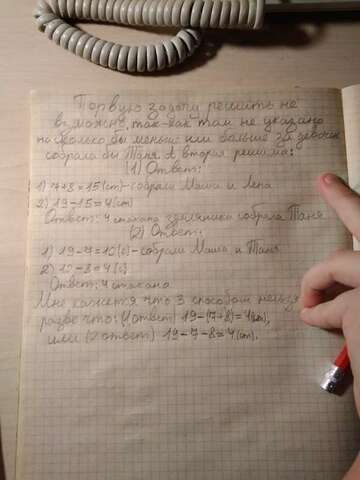 Первую задачу решить не
возможно, так-как там не указано
на сколько бы меньше или больше
собрала бы Таня. А вторая решима:
(1) Ответ:
1) 7+8=15(ст)-собрали Маша и Лена
2) 19-15=4(ст)
Ответ: 4 стакана земляники собрала Таня
(2) Ответ:
1) 19-7=10(с)-собрали Маша и Таня
2) 12-8=4(с)
Ответ: 4 стакана
Мне кажется что 3 способом нельзя
разве что: (1 ответ) 19-(7+8)=4(ст),
или (2 ответ) 19-7-8=4(ст).